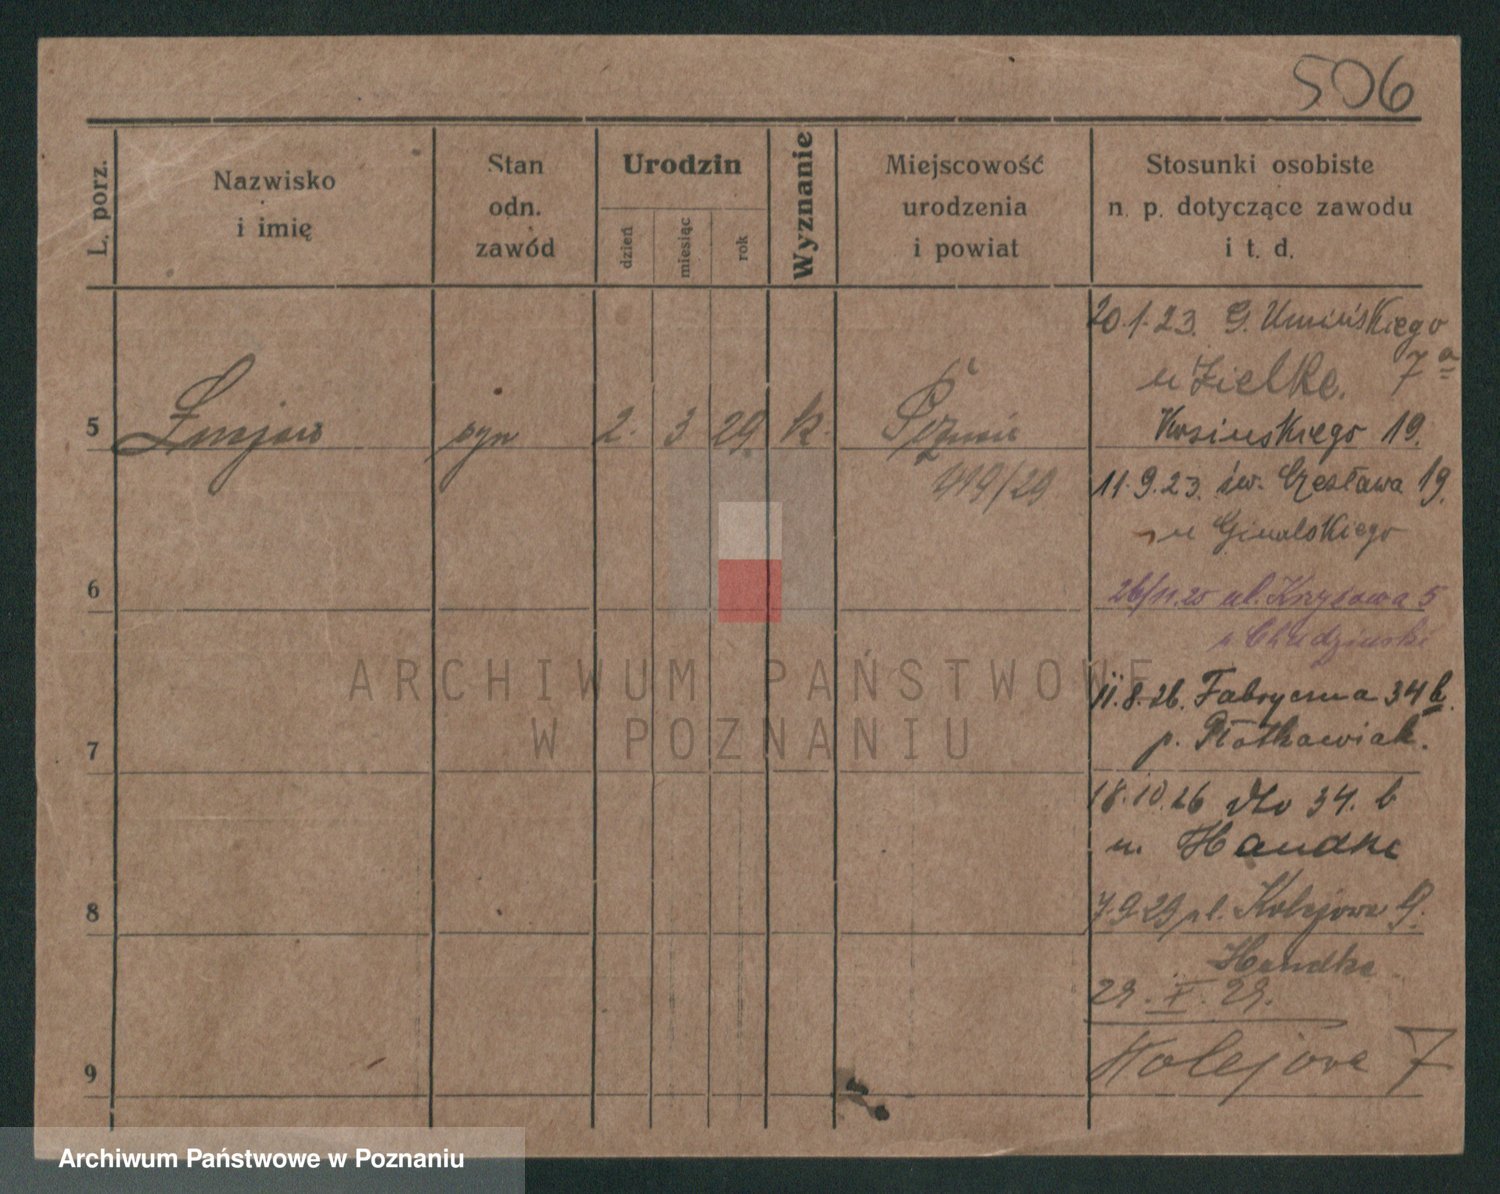 506
L. porz.
Nazwisko
i imię
Stan
odn.
zawód
Urodzin
dzień
miesiąc
rok
Wyznanie
Miejscowość
urodzenia
i powiat
Stosunki osobiste
n. p. dotyczące zawodu
i t. d.
20.1.23. G. Umińskiego
u Zielke. 7a
5 syn 2. 3 29. k.
419/29
Kosińskiego 19.
11.9.23. św. Czesława 19.
u
6
26/11.25 ul. Krysowa 5
p. Chudziński
7
11.8.26. Fabryczna 34 b.
p. Płotkowiak.
18.10.26 dto 34. b
u. Handke
8
7.9.29 ul. Kolejowa 9.
Handke
29. X. 29.
Kolejowa 7
9
ARCHIWUM PAŃSTWOWE
W POZNANIU
Archiwum Państwowe w Poznaniu